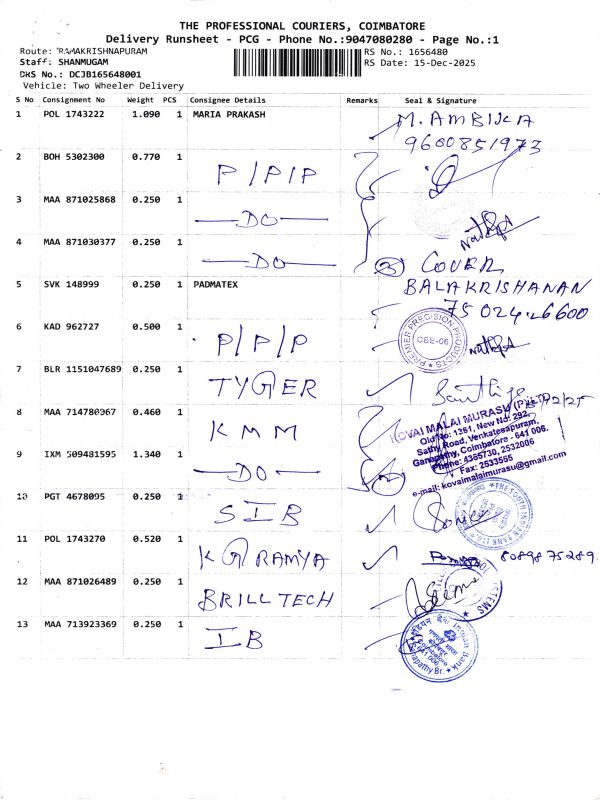 THE PROFESSIONAL COURIERS, COIMBATORE
Delivery Runsheet - PCG - Phone No.:9047080280 - Page No.:1
Route: RAMAKRISHNAPURAM RS No.: 1656480
Staff: SHANMUGAM RS Date: 15-Dec-2025
DRS No.: DCJB165648001
Vehicle: Two Wheeler Delivery
S No Consignment No Weight PCS Consignee Details Remarks Seal & Signature
1 POL 1743222 1.090 1 MARIA PRAKASH M. AMBIKA
9600851973
2 BOH 5302300 0.770 1 P/P/P
3 MAA 871025868 0.250 1 —DO—
4 MAA 871030377 0.250 1 —DO— (3) COVER
5 SVK 148999 0.250 1 PADMATEX BALAKRISHANAN
75024-26600
6 KAD 962727 0.500 1 P/P/P
PREMIER PRECISION PRODUCTS
CBE-06
7 BLR 1151047689 0.250 1 TYGER
8 MAA 714780367 0.460 1 KMM
KOVAI MALAI MURASU (P) LTD
Old No: 1361, New No: 292,
Sathy Road, Venkatesapuram,
Ganapathy, Coimbatore - 641 006.
Phone: 4385730, 2532006
Fax: 2533555
e-mail: kovaimalaimurasu@gmail.com
9 IXM 509481595 1.340 1 —DO— (2)
10 PGT 4678095 0.250 1 SIB
THE SOUTH INDIAN BANK LTD.
11 POL 1743270 0.520 1 KG RAMYA 8089875289.
12 MAA 871026489 0.250 1 BRILL TECH
13 MAA 713923369 0.250 1 IB
Indian Bank
641 006